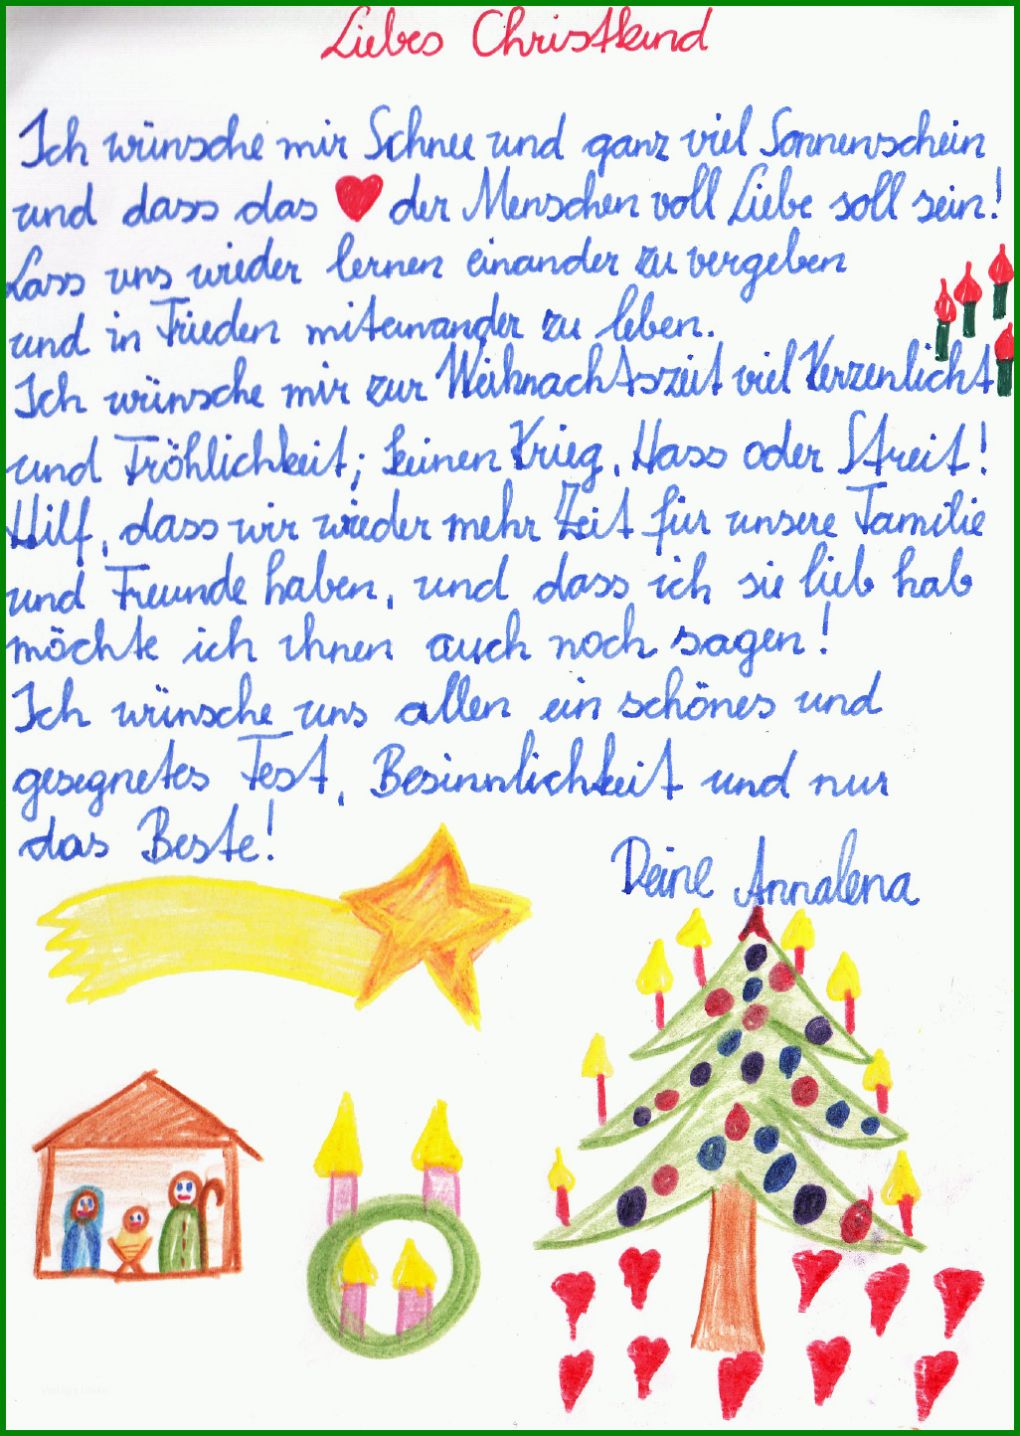 Liebes Christkind
Ich wünsche mir Schnee und ganz viel Sonnenschein
und dass das ❤ der Menschen voll Liebe soll sein!
Lass uns wieder lernen einander zu vergeben
und in Frieden miteinander zu leben.
Ich wünsche mir zur Weihnachtszeit viel Kerzenlicht
und Fröhlichkeit; keinen Krieg, Hass oder Streit!
Hilf, dass wir wieder mehr Zeit für unsere Familie
und Freunde haben, und dass ich sie lieb hab
möchte ich ihnen auch noch sagen!
Ich wünsche uns allen ein schönes und
gesegnetes Fest, Besinnlichkeit und nur
das Beste!
Deine Annalena